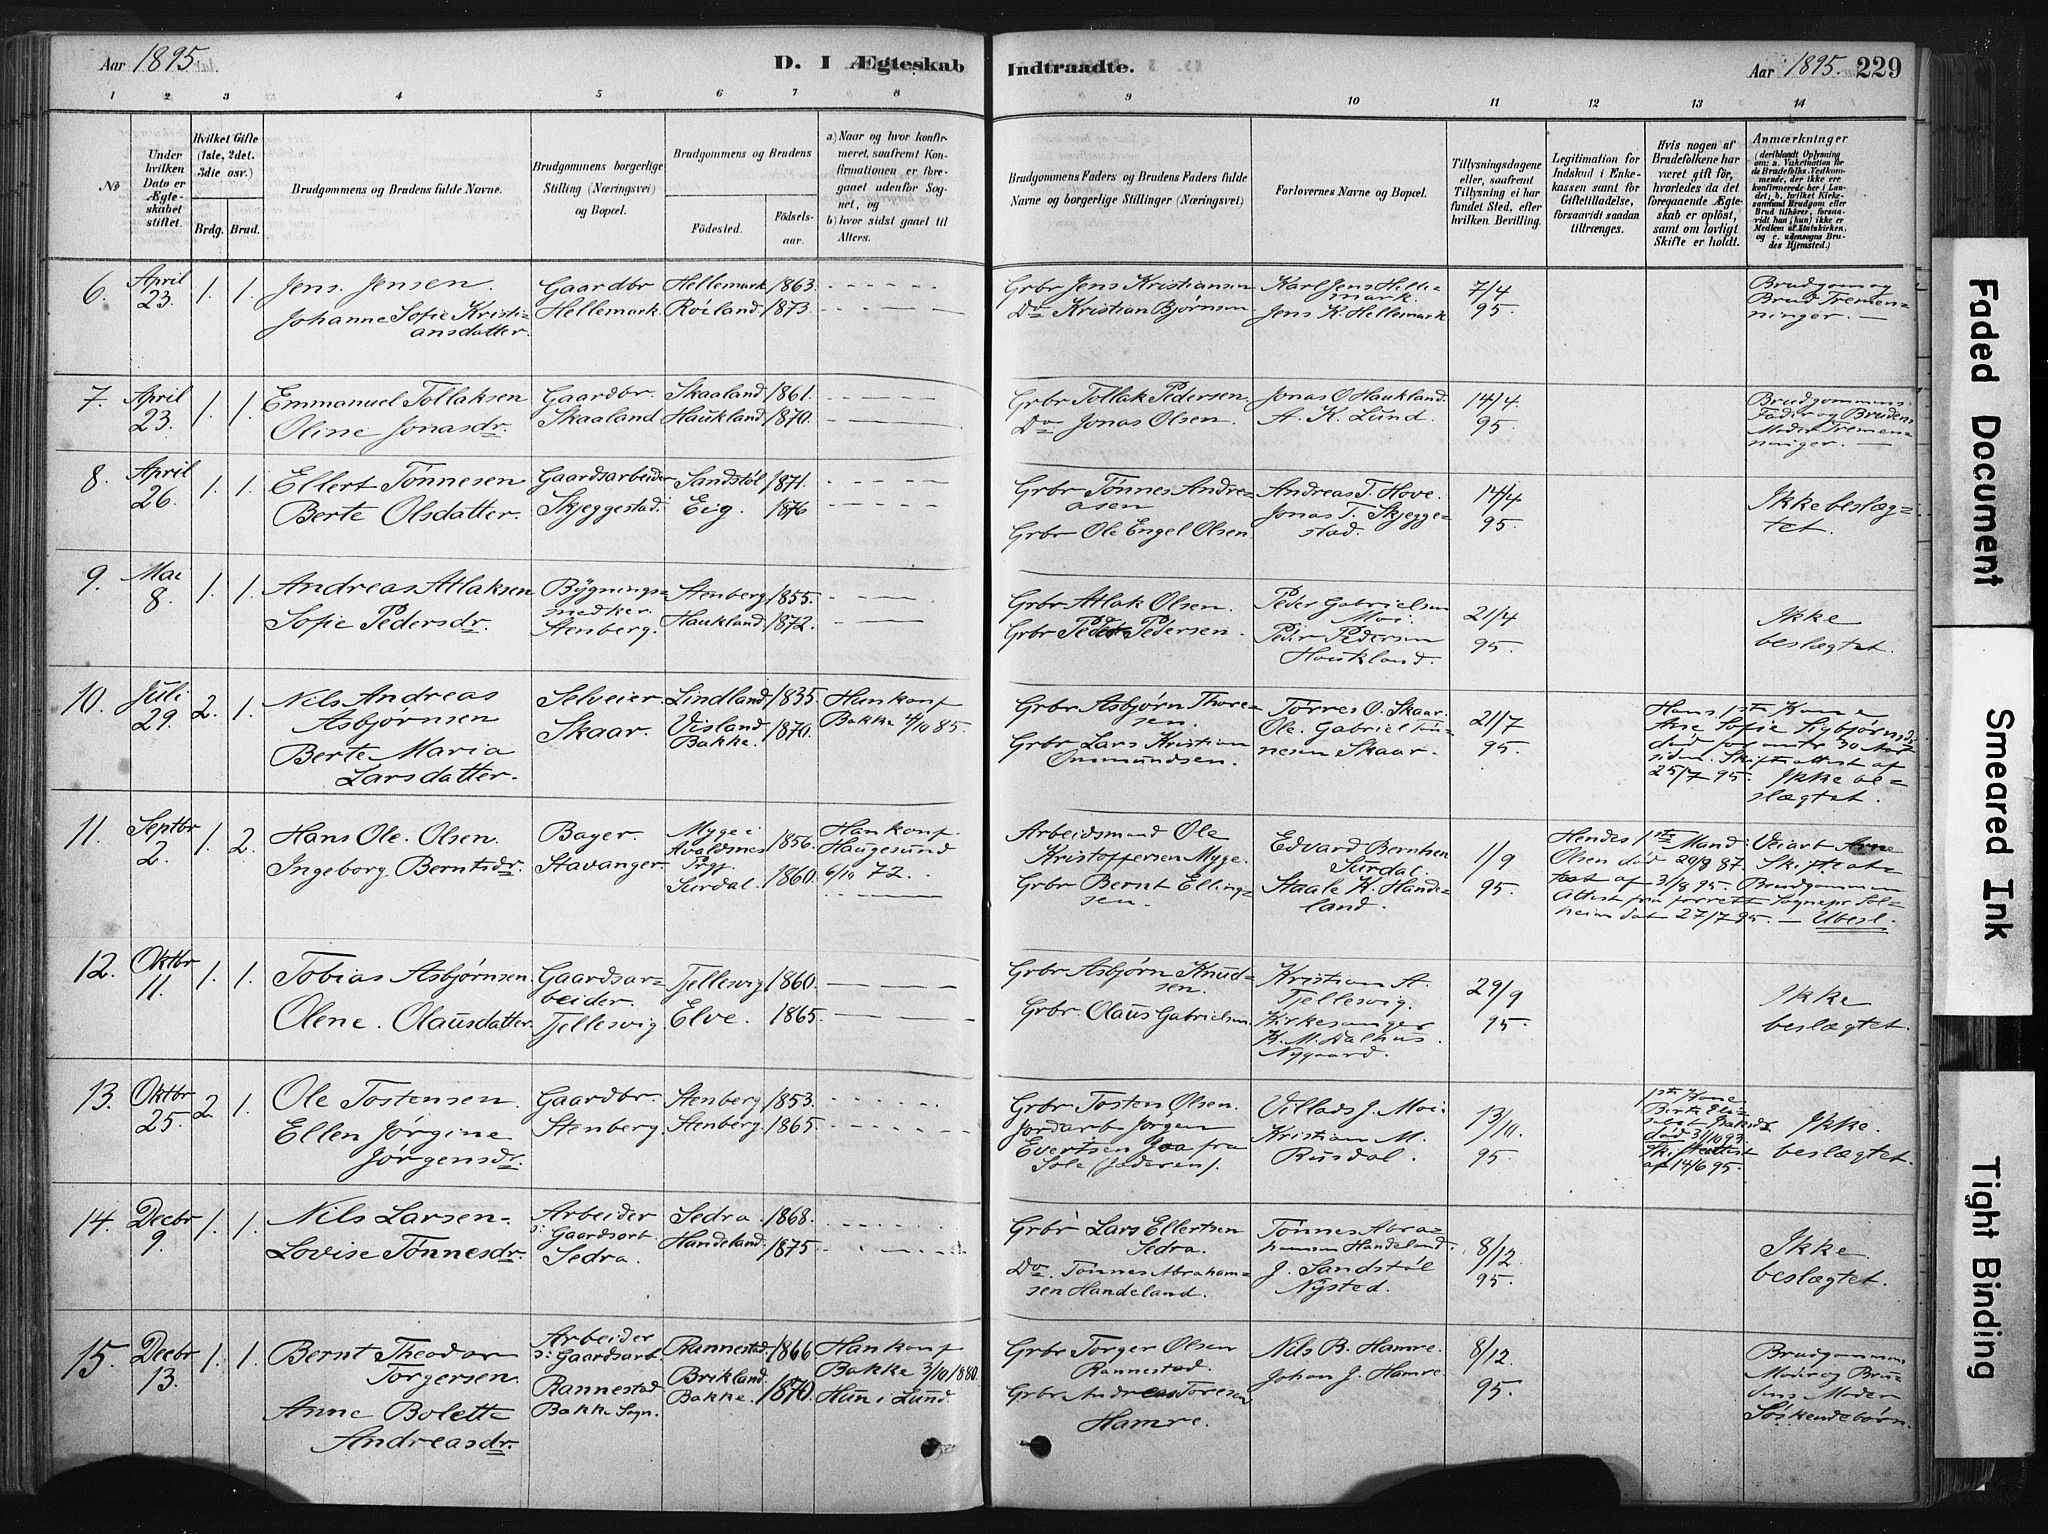 Aar 1895.
D. I Ægteskab
Indtraadte.
Aar 1895. 229
1 2 3 4 5 6 7 8 9 10 11 12 13 14
№
Under hvilken Dato er Ægteskabet stiftet.
Hvilket Gifte (1ste, 2det, 3die osv.)
Brdg. Brud.
Brudgommens og Brudens fulde Navne.
Brudgommens borgerlige Stilling (Næringsvei) og Bopæl.
Brudgommens og Brudens
Fødested.
Fødselsaar.
a) Naar og hvor konfirmeret, saafremt Konfirmationen er foregaaet udenfor Sognet, og
b) hvor sidst gaaet til Alters.
Brudgommens Faders og Brudens Faders fulde Navne og borgerlige Stillinger (Næringsvei)
Forlovernes Navne og Bopæl.
Tillysningsdagene eller, saafremt Tillysning ei har fundet Sted, efter hvilken Bevilling.
Legitimation for Indskud i Enkekassen samt for Giftetilladelse, forsaavidt saadan tiltrænges.
Hvis nogen af Brudefolkene har været gift før, hvorledes da det foregaaende Ægteskab er opløst, samt om lovligt Skifte er holdt.
Anmærkninger
(deriblandt Oplysning om: a. Vakcination for de Brudefolks Vedkommende, der ikke ere konfirmerede her i Landet; b. hvilket Kirkesamfund Brudgom eller Brud tilhører, forsaavidt han (hun) ikke er Medlem af Statskirken, og c. udensogns Brudes Hjemsted.)
6. April 23. 1. 1.
Jens Jensen.
Johanne Sofie Kristiansdatter.
Gaardbr Hellemark.
Hellemark 1863.
Røiland 1873.
Grbr Jens Kristiansen
Do Kristian Bjørnsen
Karl Jens Hellemark.
Jens K. Hellemark
7/4 95.
Brudgom og Brud Tremenninger.
7. April 23. 1. 1.
Emmanuel Tollaksen
Oline Jonasdr.
Gaardbr. Skaaland
Skaaland 1861.
Haukland 1870.
Grbr Tollak Pedersen.
Do Jonas Olsen.
Jonas O Haukland.
A. K. Lund.
14/4 95.
Brudgommens Fader og Brudens Moder Tremenninger.
8. April 26. 1. 1.
Ellert Tønnesen
Berte Olsdatter.
Gaardsarbeider Skjeggestad.
Sandstøl 1871.
Eig. 1876
Grbr Tønnes Andreasen
Grbr Ole Engel Olsen.
Andreas T. Hove.
Jonas T. Skjeggestad.
14/4 95.
Ikke beslægtet.
9. Mai 8. 1. 1.
Andreas Atlaksen
Sofie Pedersdr.
Bygningsmedker. Stenberg.
Stenberg. 1855.
Haukland 1872.
Grbr Atlak Olsen.
Grbr Peder Pedersen.
Peder Gabrielsen Moi.
Peder Pedersen Haukland.
21/4 95.
Ikke beslægtet.
10. Juli 29. 2. 1.
Nils Andreas Asbjørnsen
Berte Maria Larsdatter.
Selveier Skaar.
Lindland 1835.
Visland Bakke. 1870.
Han konf Bakke 4/10 85.
Grbr Asbjørn Thoresen.
Grbr Lars Kristian Ommundsen.
Torres O. Skaar.
Ole Gabriel Tønnesen Skaar.
21/7 95.
Hans 1ste Kone Ane Sofie Sigbjørnsdr død for omtr 30 Aar siden. Skifteattest af 25/7 95. Ikke beslægtet.
11. Septbr 2. 1. 2.
Hans Ole Olsen.
Ingeborg Berntsdr.
Bager. Stavanger.
Myge i Avaldsnes Prgj 1856.
Surdal. 1860.
Han konf. Haugesund 6/10 72.
Arbeidsmand Ole Kristoffersen Myge.
Grbr Bernt Ellingsen.
Edvard Berntsen Surdal.
Staale K. Handeland.
1/9 95.
Hendes 1ste Mand: Veiarb Arne Olsen død 20/9 87. Skifteattest af 31/8 95. Brudgommen Attest fra forrett Sognepr Solheim dat 27/7 95. – Ubesl.
12. Oktbr 11. 1. 1.
Tobias Asbjørnsen
Olene Olausdatter
Gaardsarbeider. Tjellesvig.
Tjellesvig 1860.
Elve. 1865.
Grbr Asbjørn Knudsen.
Grbr Olaus Gabrielsen
Kristian A. Tjellesvig.
Kirkesanger K. M. Dalhus. Nygaard.
29/9 95.
Ikke beslægtet.
13. Oktbr 25. 2. 1.
Ole Tostensen.
Ellen Jørgine Jørgensdr.
Gaardbr. Stenberg.
Stenberg 1853.
Stenberg. 1865.
Grbr Tosten Olsen.
Jordarb Jørgen Evertsen Joa fra Sole (Jæderen).
Villads J. Moi.
Kristian M. Rusdal.
13/10. 95.
1ste Kone Berte død 31/10 93. Skifteattest af 14/6 95.
Ikke beslægtet.
14. Decbr 9. 1. 1.
Nils Larsen.
Lovise Tønnesdr.
Arbeider ɔ: Gaardsarb. Sedra.
Sedra. 1868.
Handeland. 1875
Grbr Lars Ellertsen Sedra.
Do. Tønnes Abrahamsen Handeland.
Tønnes Abrahamsen Handeland.
J. Sandstøl Nysted.
8/12 95.
Ikke beslægtet.
15. Decbr 13. 1. 1.
Bernt Theodor Torgersen.
Anne Bolette Andreasdr.
Arbeider ɔ: Gaardsarb. Rannestad Bakke Sogn.
Rannestad. 1866
Brikland. Bakke. 1870.
Han konf Bakke 3/10 1880.
Hun i Lund.
Grbr Torger Olsen Rannestad.
Grbr Andreas Toresen Hamre.
Nils B. Hamre.
Johan J. Hamre.
8/12. 95.
Brudgommens Moder og Brudens Moder Søskendebørn.
Faded Document
Smeared Ink
Tight Binding